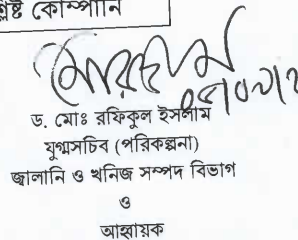 কোম্পানি
ড. মোঃ রফিকুল ইসলাম
যুগ্মসচিব (পরিকল্পনা)
জ্বালানি ও খনিজ সম্পদ বিভাগ
ও
আহ্বায়ক